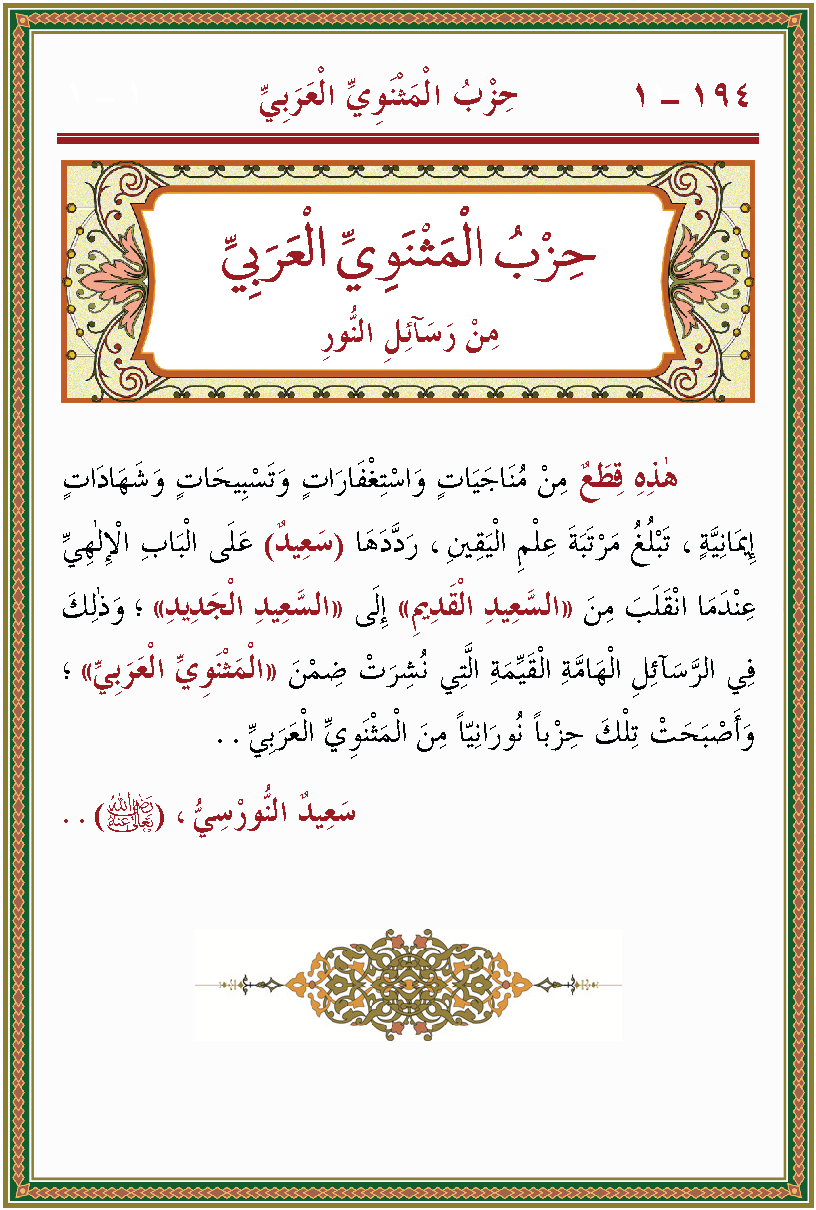 ١٩٤ – ١ حِزْبُ الْمَثْنَوِيِّ الْعَرَبِيِّ
حِزْبُ الْمَثْنَوِيِّ الْعَرَبِيِّ
مِنْ رَسَآئِلِ النُّورِ
هٰذِهِ قِطَعٌ مِنْ مُنَاجَيَاتٍ وَاسْتِغْفَارَاتٍ وَتَسْبِيحَاتٍ وَشَهَادَاتٍ
إِيمَانِيَّةٍ ، تَبْلُغُ مَرْتَبَةَ عِلْمِ الْيَقِينِ ، رَدَّدَهَا (سَعِيدٌ) عَلَى الْبَابِ الْإِلٰهِيِّ
عِنْدَمَا انْقَلَبَ مِنَ «السَّعِيدِ الْقَدِيمِ» إِلَى «السَّعِيدِ الْجَدِيدِ» ؛ وَذٰلِكَ
فِي الرَّسَآئِلِ الْهَامَّةِ الْقَيِّمَةِ الَّتِي نُشِرَتْ ضِمْنَ «الْمَثْنَوِيِّ الْعَرَبِيِّ» ؛
وَأَصْبَحَتْ تِلْكَ حِزْباً نُورَانِيّاً مِنَ الْمَثْنَوِيِّ الْعَرَبِيِّ . .
سَعِيدٌ النُّورْسِيُّ ، (رضي الله تعالى عنه) . .